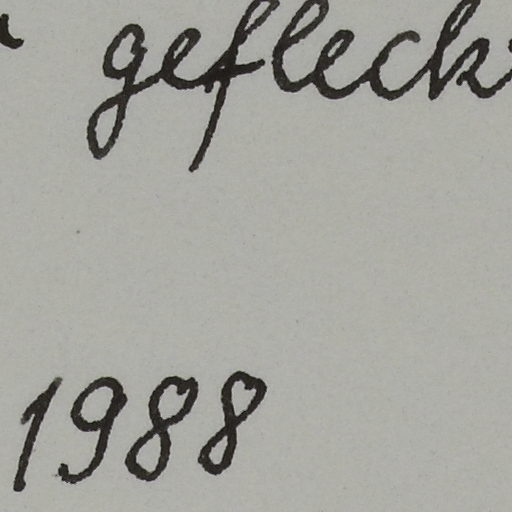 gefleckt
1988